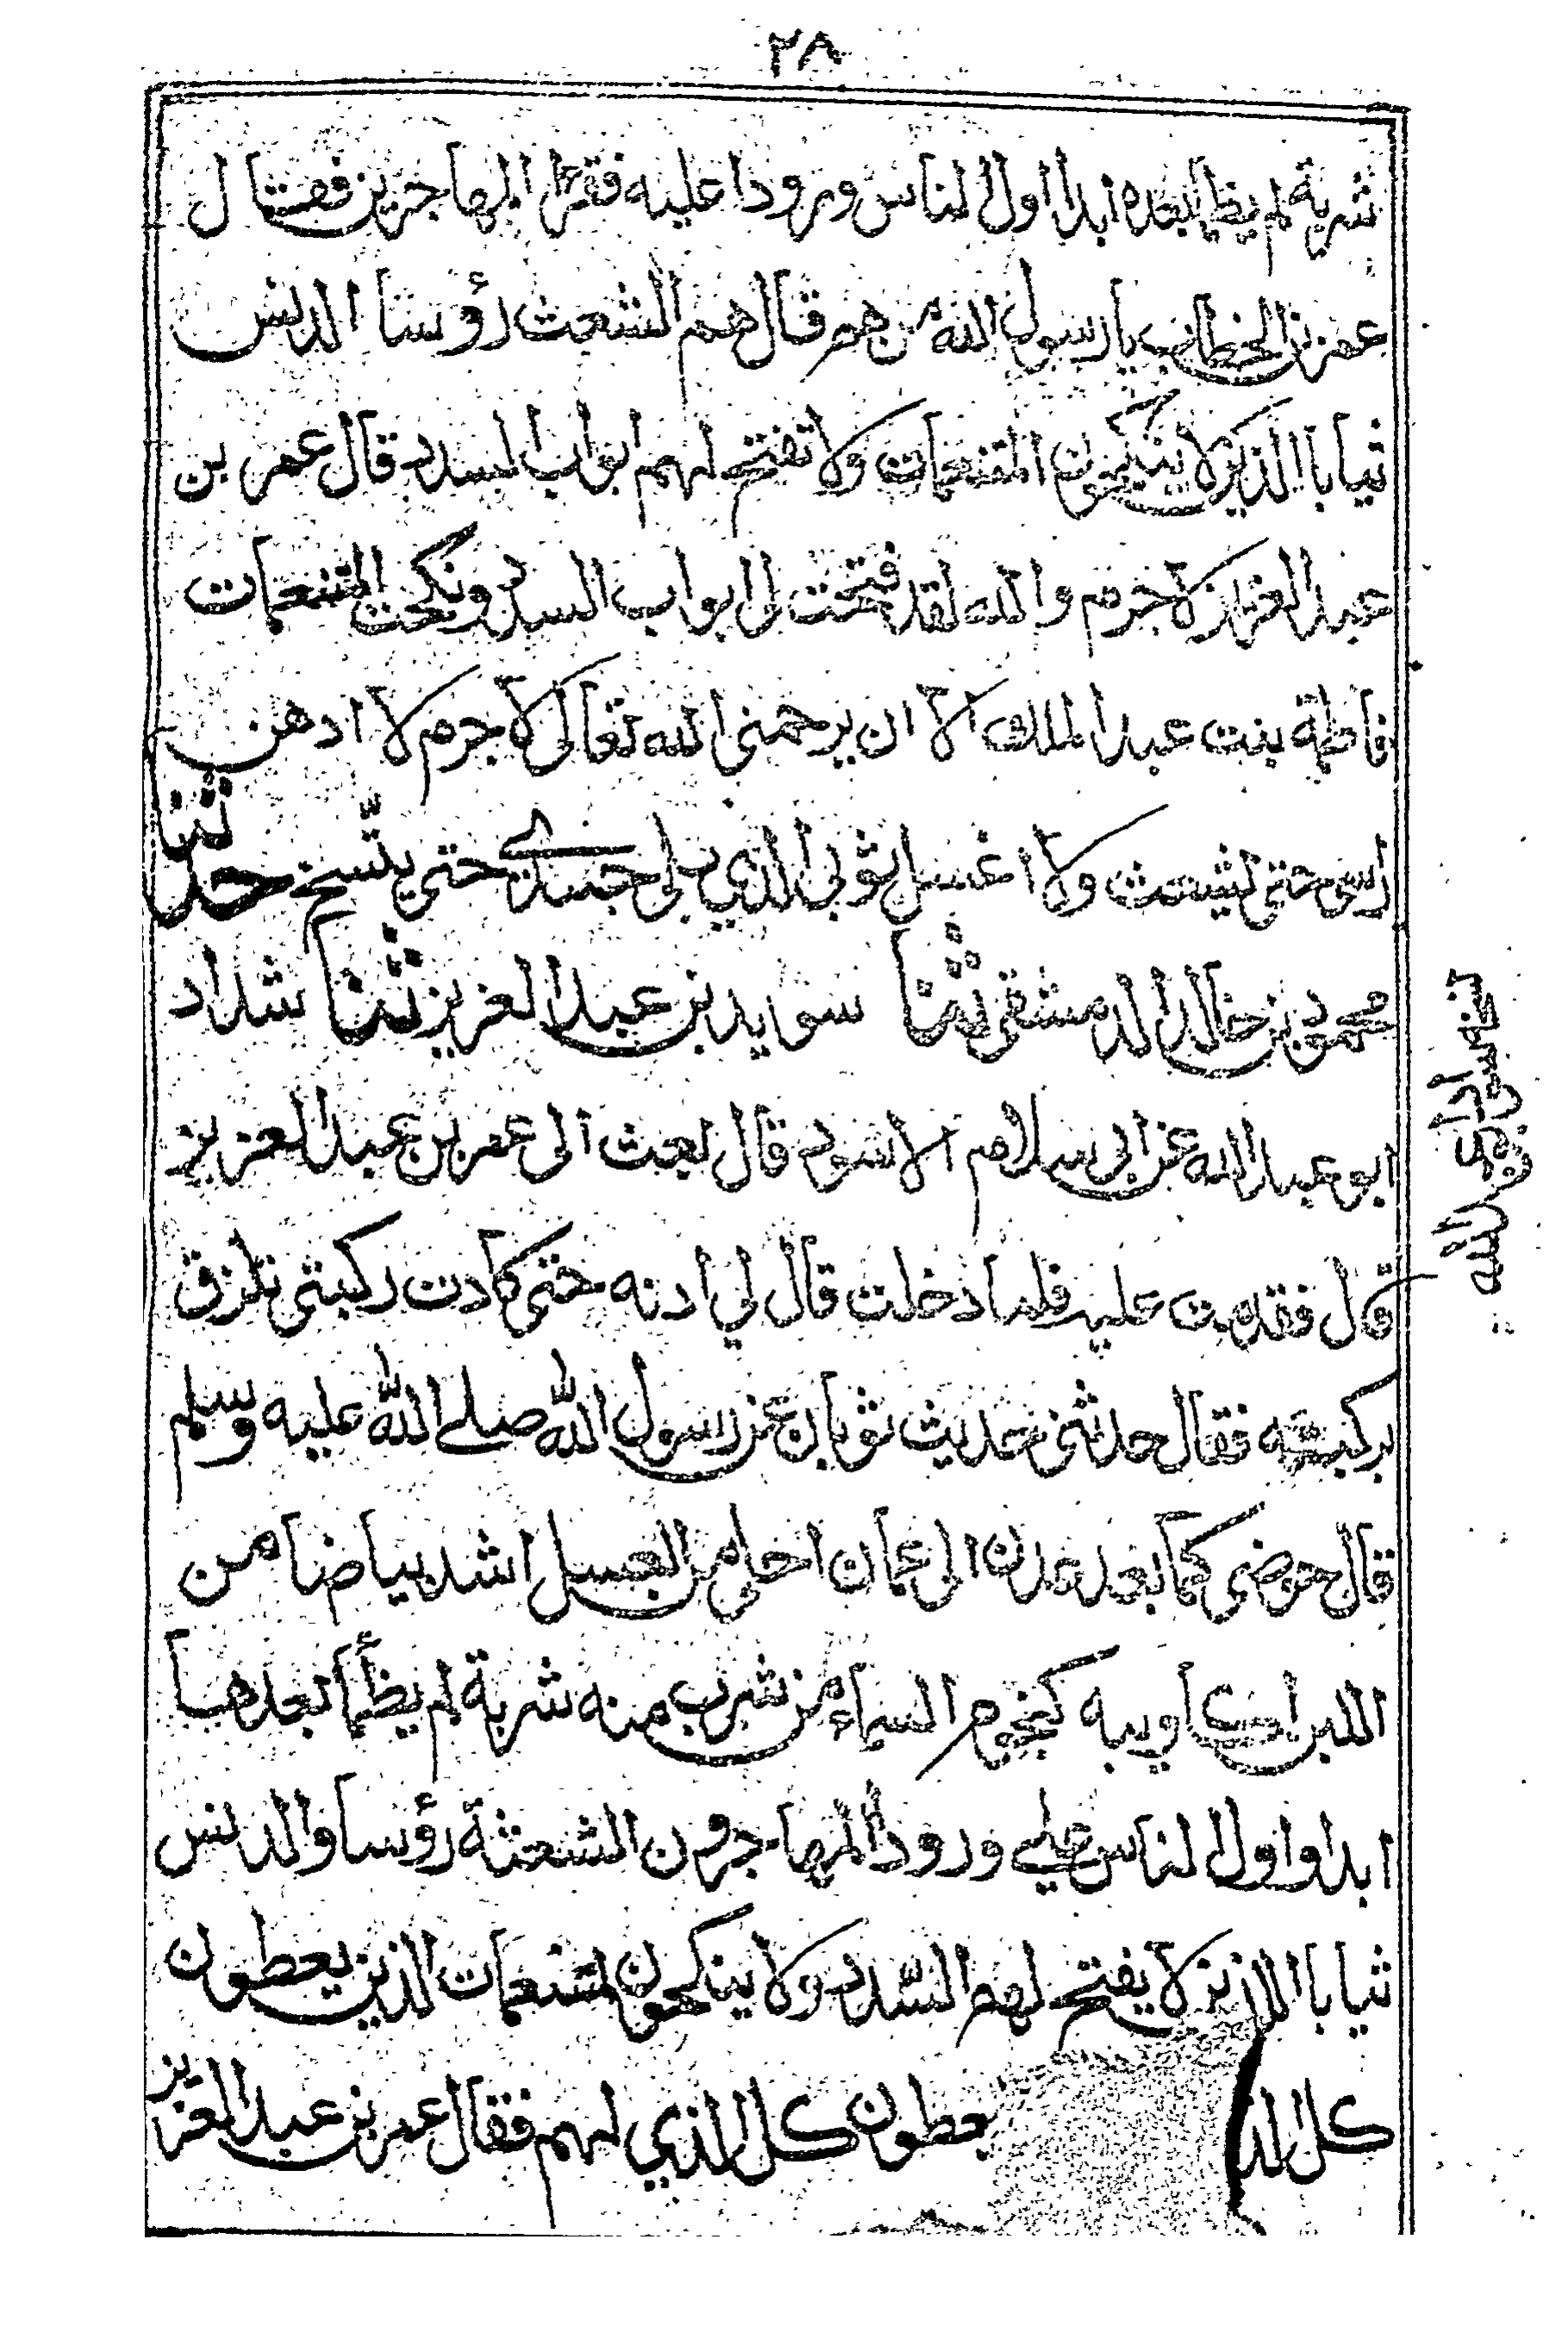 ٢٨
شربة لم يظما بعده ابدا اول الناس ورودا عليه فقرا المهاجرين فقال
عمر بن الخطاب يا رسول الله من هم قال هم الشعث رؤسا الدنس
ثيابا الذين لا ينكحون المتنعمات ولا تفتح لهم ابواب السدد قال عمر بن
عبد العزيز لا جرم والله لقد فتحت لي ابواب السدد ونكحت المتنعمات
فاطمة بنت عبد الملك الا ان يرحمني الله تعالى لا جرم لا ادهن
راسي حتى يشعث ولا اغسل ثوبي الذي يلي جسدي حتى يتسخ حدثنا
محمود بن خالد الدمشقي ثنا سويد بن عبد العزيز ثنا شداد
ابو عبد الله عن ابي سلام الاسود قال بعث الى عمر بن عبد العزيز
قال فقدمت عليه فلما دخلت قال لي ادنه حتى كادت ركبتي تلزق
بركبته فقال حدثني حديث ثوبان عن رسول الله صلى الله عليه وسلم
قال حوضي كما بعد عدن الى عمان احلى من العسل اشد بياضا من
اللبن اكاويبه كنجوم السماء من شرب منه شربة لم يظمأ بعدها
ابدا واول الناس علي ورودا المهاجرون الشعثة رؤسا والدنس
ثيابا الذين لا يفتح لهم السدد ولا ينكحون المتنعمات الذين يعطون
كل الذ يعطون كل الذي لهم فقال عمر بن عبد العزيز